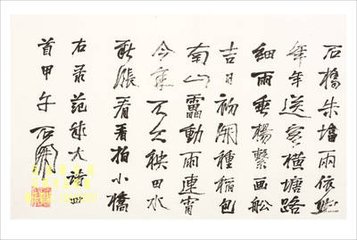 石橋朱塔兩依然
年年送客橫塘路
細雨垂楊繫画船
吉日初開種稻包
南山靁動雨連宵
今年不欠秧田水
新漲看看拍小橋
右录范成大詩四
首甲午石